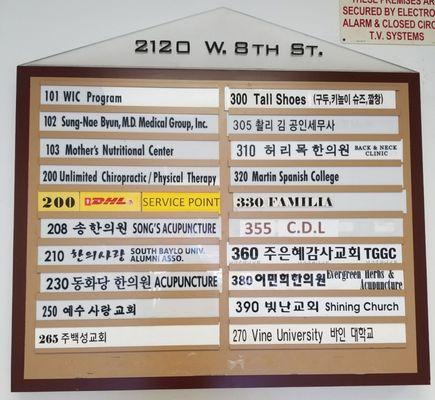 THESE PREMISES ARE
SECURED BY ELECTRO
ALARM & CLOSED CIRC
T.V. SYSTEMS
2120 W. 8TH ST.
101 WIC Program
102 Sung-Nae Byun, M.D. Medical Group, Inc.
103 Mother's Nutritional Center
200 Unlimited Chiropractic / Physical Therapy
200 DHL SERVICE POINT
208 송한의원 SONG'S ACUPUNCTURE
210 한의사랑 SOUTH BAYLO UNIV. ALUMNI ASSO.
230 동화당 한의원 ACUPUNCTURE
250 예수사랑교회
265 주백성교회
300 Tall Shoes (구두,키높이 슈즈,깔창)
305 찰리 김 공인세무사
310 허리목한의원 BACK & NECK CLINIC
320 Martin Spanish College
330 FAMILIA
355 C.D.L
360 주은혜감사교회 TGGC
380 이민희한의원 Evergreen Herbs & Acupuncture
390 빛난교회 Shining Church
270 Vine University 바인 대학교